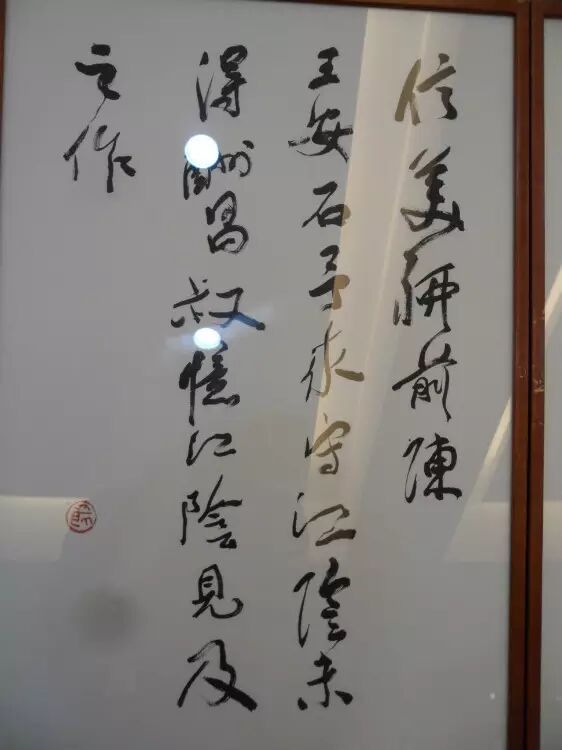 信美前陳
王安石予求守江陰未
得酬昌叔憶江陰見及
之作